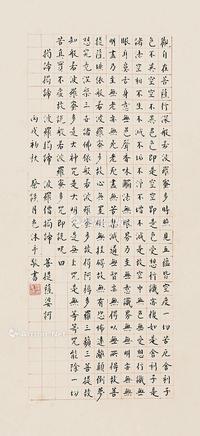 觀自在菩薩行深般若波羅蜜多時照見五蘊皆空度一切苦厄舍利子
色不異空空不異色色即是空空即是色受想行識亦復如是舍利子是
諸法空相不生不滅不垢不淨不增不減是故空中無色無受想行識無
眼耳鼻舌身意無色聲香味觸法無眼界乃至無意識界無無明亦無無
明盡乃至無老死亦無老死盡無苦集滅道無智亦無得以無所得故菩
提薩埵依般若波羅蜜多故心無罣礙無罣礙故無有恐怖遠離顛倒夢
想究竟涅槃三世諸佛依般若波羅蜜多故得阿耨多羅三藐三菩提故
知般若波羅蜜多是大神咒是大明咒是無上咒是無等等咒能除一切
苦真實不虛故說般若波羅蜜多咒即說咒曰
揭諦揭諦 波羅揭諦 波羅僧揭諦 菩提薩婆訶
丙戌初秋 蔡談月色沐手敬書